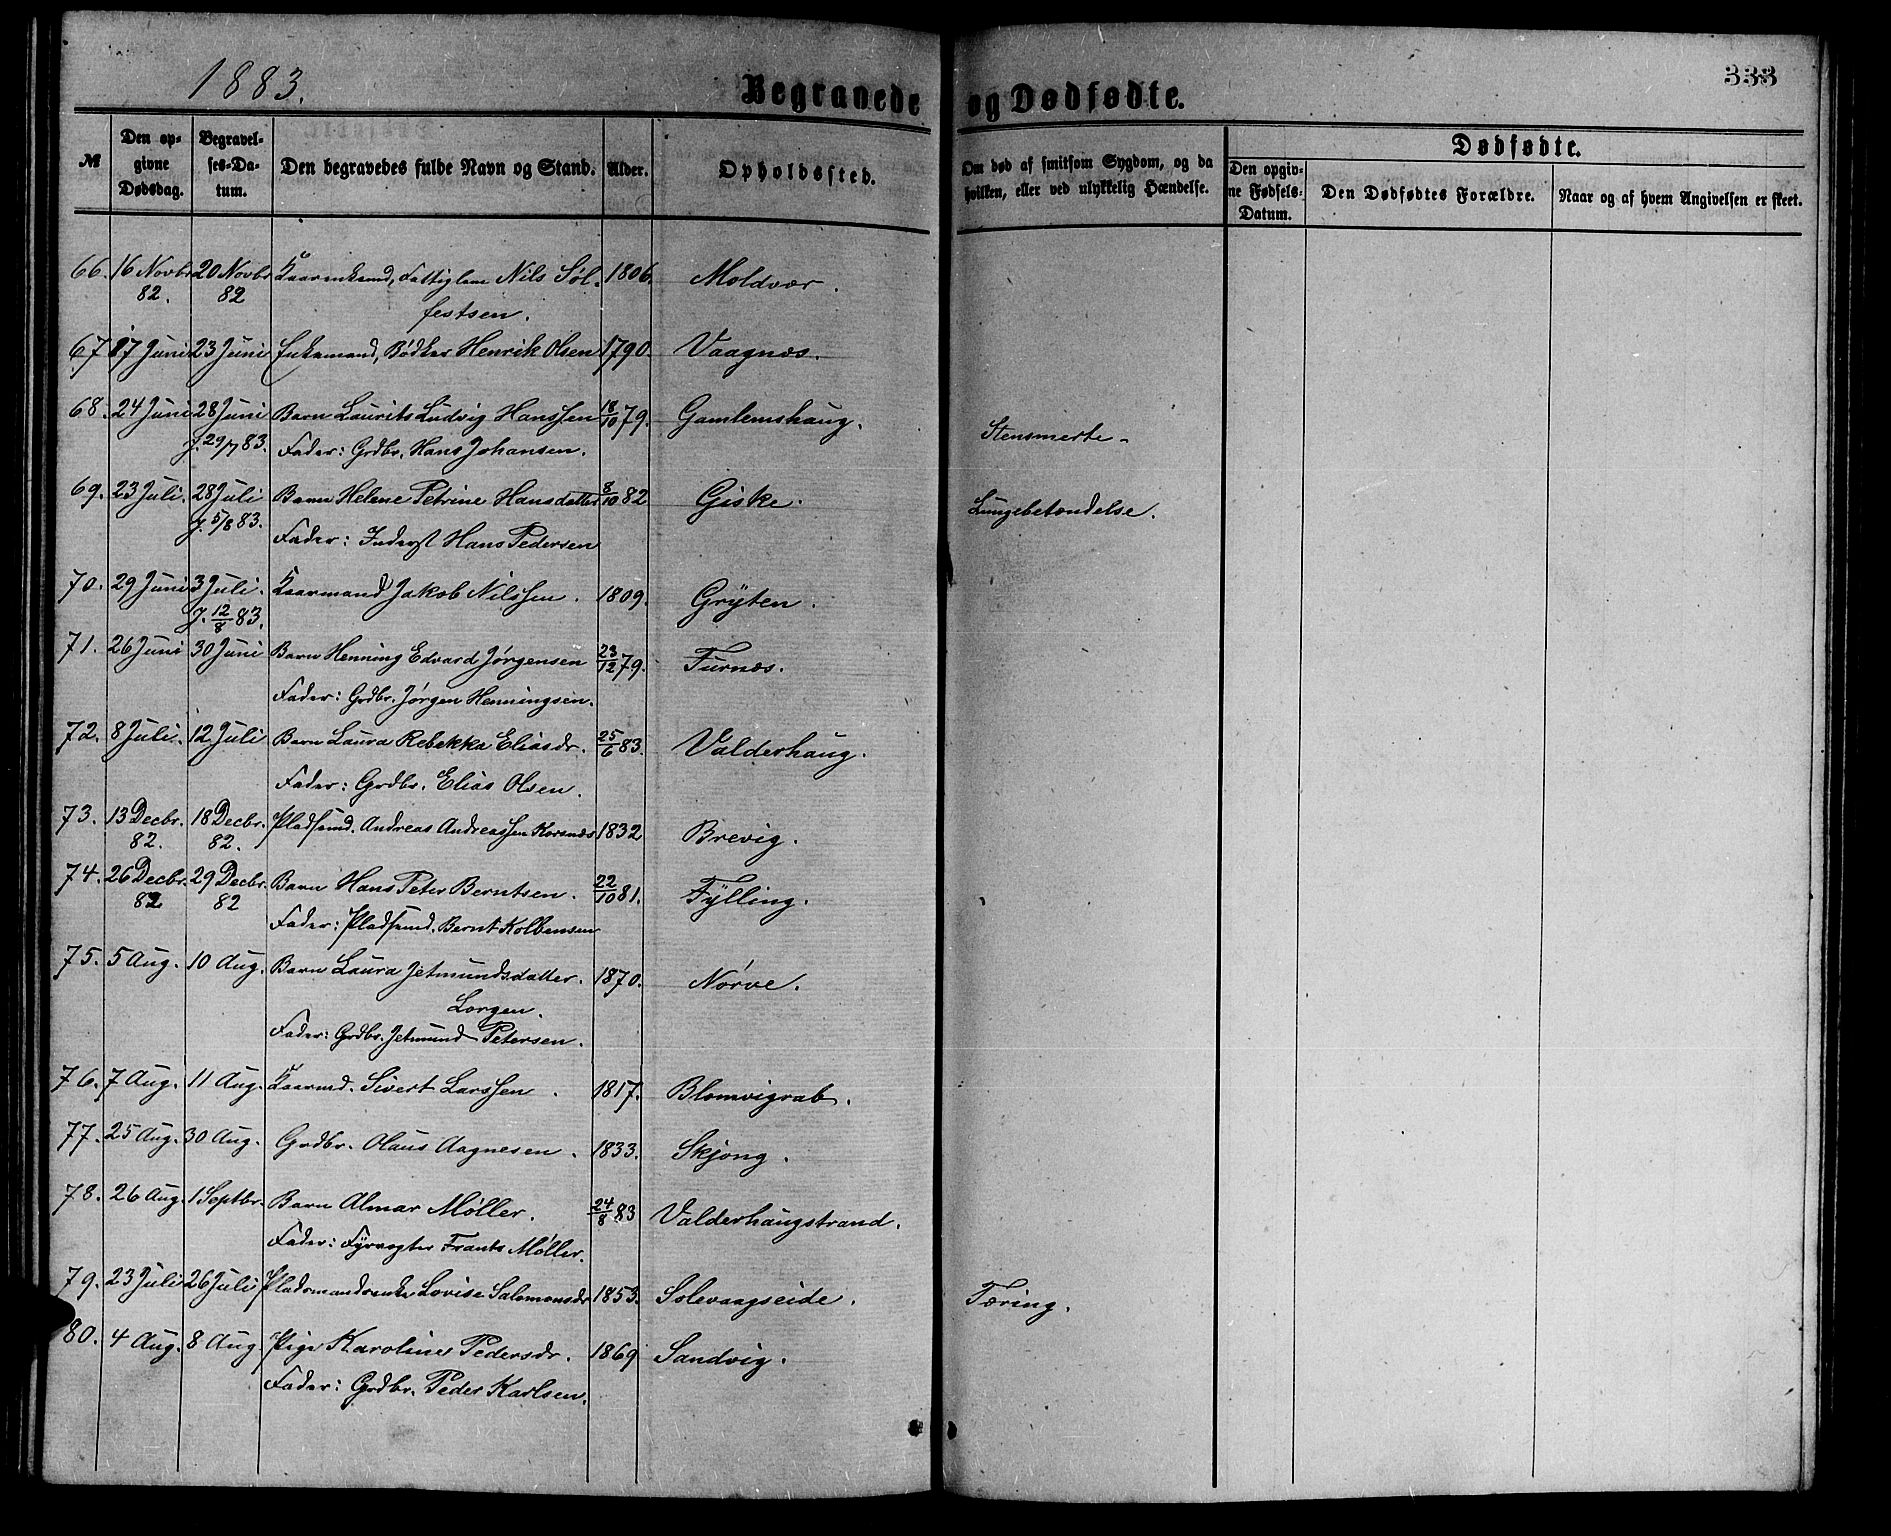 1883.
333
Begravede og Dødfødte.
№
Den op-
givne
Dødsdag.
Begravel-
ses-Da-
tum.
Den begravedes fulde Navn og Stand.
Alder.
Opholdssted.
Om død af smitsom Sygdom, og da
hvilken, eller ved ulykkelig Hændelse.
Dødfødte.
Den opgiv-
ne Fødsels-
Datum.
Den Dødfødtes Forældre.
Naar og af hvem Angivelsen er skeet.
66. 16 Novbr 20 Novbr Kaarenkemd, Fattiglem Nils Søl- 1806. Moldvær.
82. 82 festsen.
67 17 Juni 23 Juni Enkemand, Bødker Henrik Olsen 1790. Vaagnæs.
68. 24 Juni 28 Juni Barn Laurits Ludvig Hanssen 18/10 79. Gamlemshaug. Stensmerte
J. 29/7 83. Fader: Grdbr. Hans Johansen.
69. 23 Juli. 28 Juli Barn Helene Petrine Hansdatter 8/10 82 Giske. Lungebetændelse.
J. 5/8 83. Fader: Inderst Hans Pedersen
70. 29 Juni 3 Juli. Kaarmand Jakob Nilssen. 1809. Grÿten.
J. 12/8 83.
71. 26 Juni 30 Juni Barn Henning Edvard Jørgensen 23/12 79. Furnæs.
Fader: Grdbr. Jørgen Henningsen.
72. 8 Juli. 12 Juli Barn Laura Rebekka Eliasdr. 25/6 83. Valderhaug.
Fader: Grdbr. Elias Olsen.
73. 13 Decbr. 18 Decbr. Pladsemd. Andreas Andreassen Korsnæs 1832 Brevig.
82. 82.
74. 26 Decbr. 29 Decbr. Barn Hans Peter Berntsen. 22/10 81. Fÿlling.
82 82 Fader: Pladsemd. Bernt Kolbensen
75. 5 Aug. 10 Aug. Barn Laura Jetmundsdatter. 1870. Nørve.
Lorgen.
Fader: Grdbr. Jetmund Petersen.
76. 7 Aug. 11 Aug. Kaarmd. Sivert Larssen. 1817. Blomvigrab.
77. 25 Aug. 30 Aug. Grdbr. Olaus Aagnesen. 1833. Skjong.
78. 26 Aug. 1 Septbr. Barn Almar Møller. 24/8 83 Valderhaugstrand.
Fader: Fyrvogter Frants Møller.
79. 23 Juli 26 Juli Pladsmandsenke Lovise Salomonsdr 1853. Solevaagseide. Tæring.
80. 4 Aug. 8 Aug. Pige Karoline Pedersdr. 1869 Sandvig.
Fader: Grdbr. Peder Karlsen.